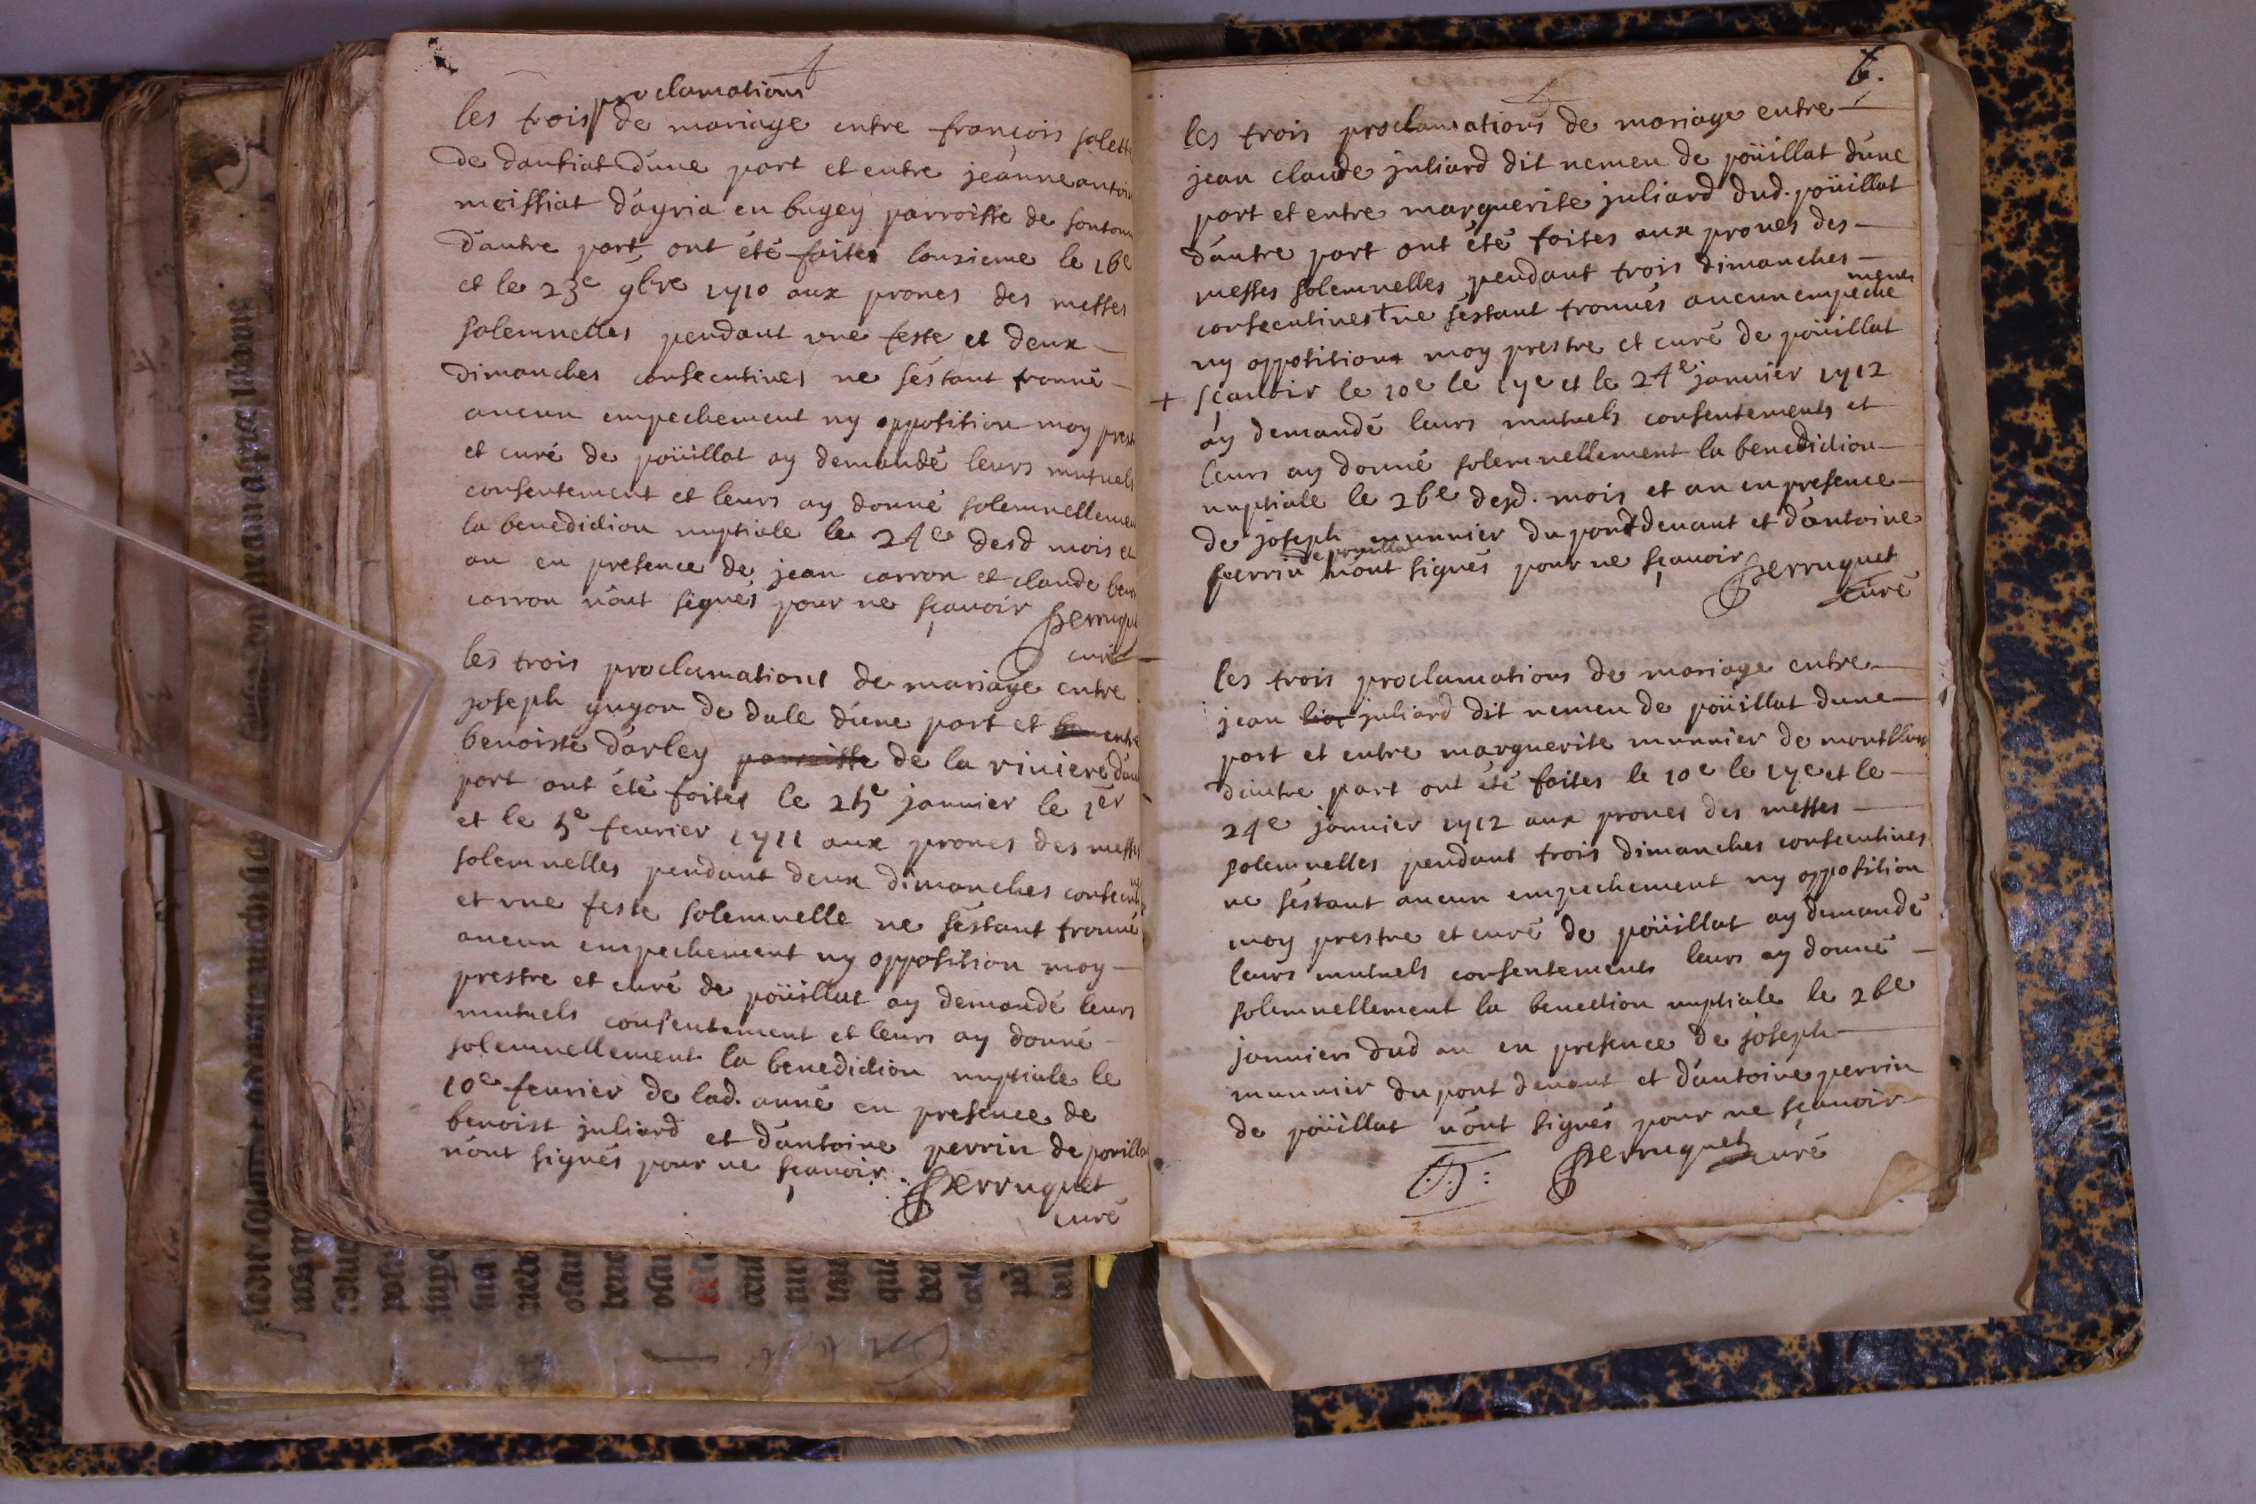 proclamations
les trois de mariage entre françois
de d'une part et entre jeanne
d'ayria en bugey parroisse de
d'autre part ont été faites l'onzieme le 16e
et le 23e 9bre 1710 aux prones des messes
solemnelles pendant une feste et deux
dimanches consecutives ne s'éstant trouué
aucun empechement ny opposition moy
et curé de poüillat ay demandé leurs mutuels
consentement et leurs ay donné solemnellement
la benediction nuptiale le 24e desd mois et
an en presence de jean carron et claude
carron n'ont signés pour ne sçauoir Perruquet
curé
les trois proclamations de mariage entre
joseph guyon de dale d'une part et entre
benoiste d'arley parroisse de la riuiere
part ont été faites le 25e januier le 1er
et le 5e feurier 1711 aux prones des messes
solemnelles pendant deux dimanches
et vne feste solemnelle ne s'éstant trouué
aucun empechement ny opposition moy
prestre et curé de poüillat ay demandé leurs
mutuels consentement et leurs ay donné
solemnellement la benediction nuptiale le
10e feurier de lad. année en presence de
benoist juliard et d'antoine perrin de
n'ont signés pour ne sçauoir. Perruquet
curé
les trois proclamations de mariage entre
jean claude juliard dit nemeu de poüillat d'une
part et entre marguerite juliard dud. poüillat
d'autre part ont été faites aux prones des
messes solemnelles pendant trois dimanches
ments
consecutiues + ne s'éstant trouués aucun empeche
ny oppositions moy prestre et curé de poüillat
+ sçauoir le 10e le 17e et le 24e januier 1712
ay demandé leurs mutuels consentements et
leurs ay donné solemnellement la benediction
nuptiale le 26e desd. mois et an en presence
de joseph munnier du pont deuant et d'antoine
de poüillat
perrin n'ont signés pour ne sçauoir Perruquet
curé
les trois proclamations de mariage entre
jean juliard dit nemeu de poüillat dune
part et entre marguerite munnier de
d'autre part ont été faites le 10e le 17e et le
24e januier 1712 aux prones des messes
solemnelles pendant trois dimanches consecutiues
ne s'éstant aucun empechement ny opposition
moy prestre et curé de poüillat ay demandé
leurs mutuels consentements leurs ay donné
solemnellement la benection nuptiale le 26e
januiers dud an en presence de joseph
munnier du pont deuant et d'antoine perrin
de poüillat n'ont signés pour ne sçauoir
Perruquet curé